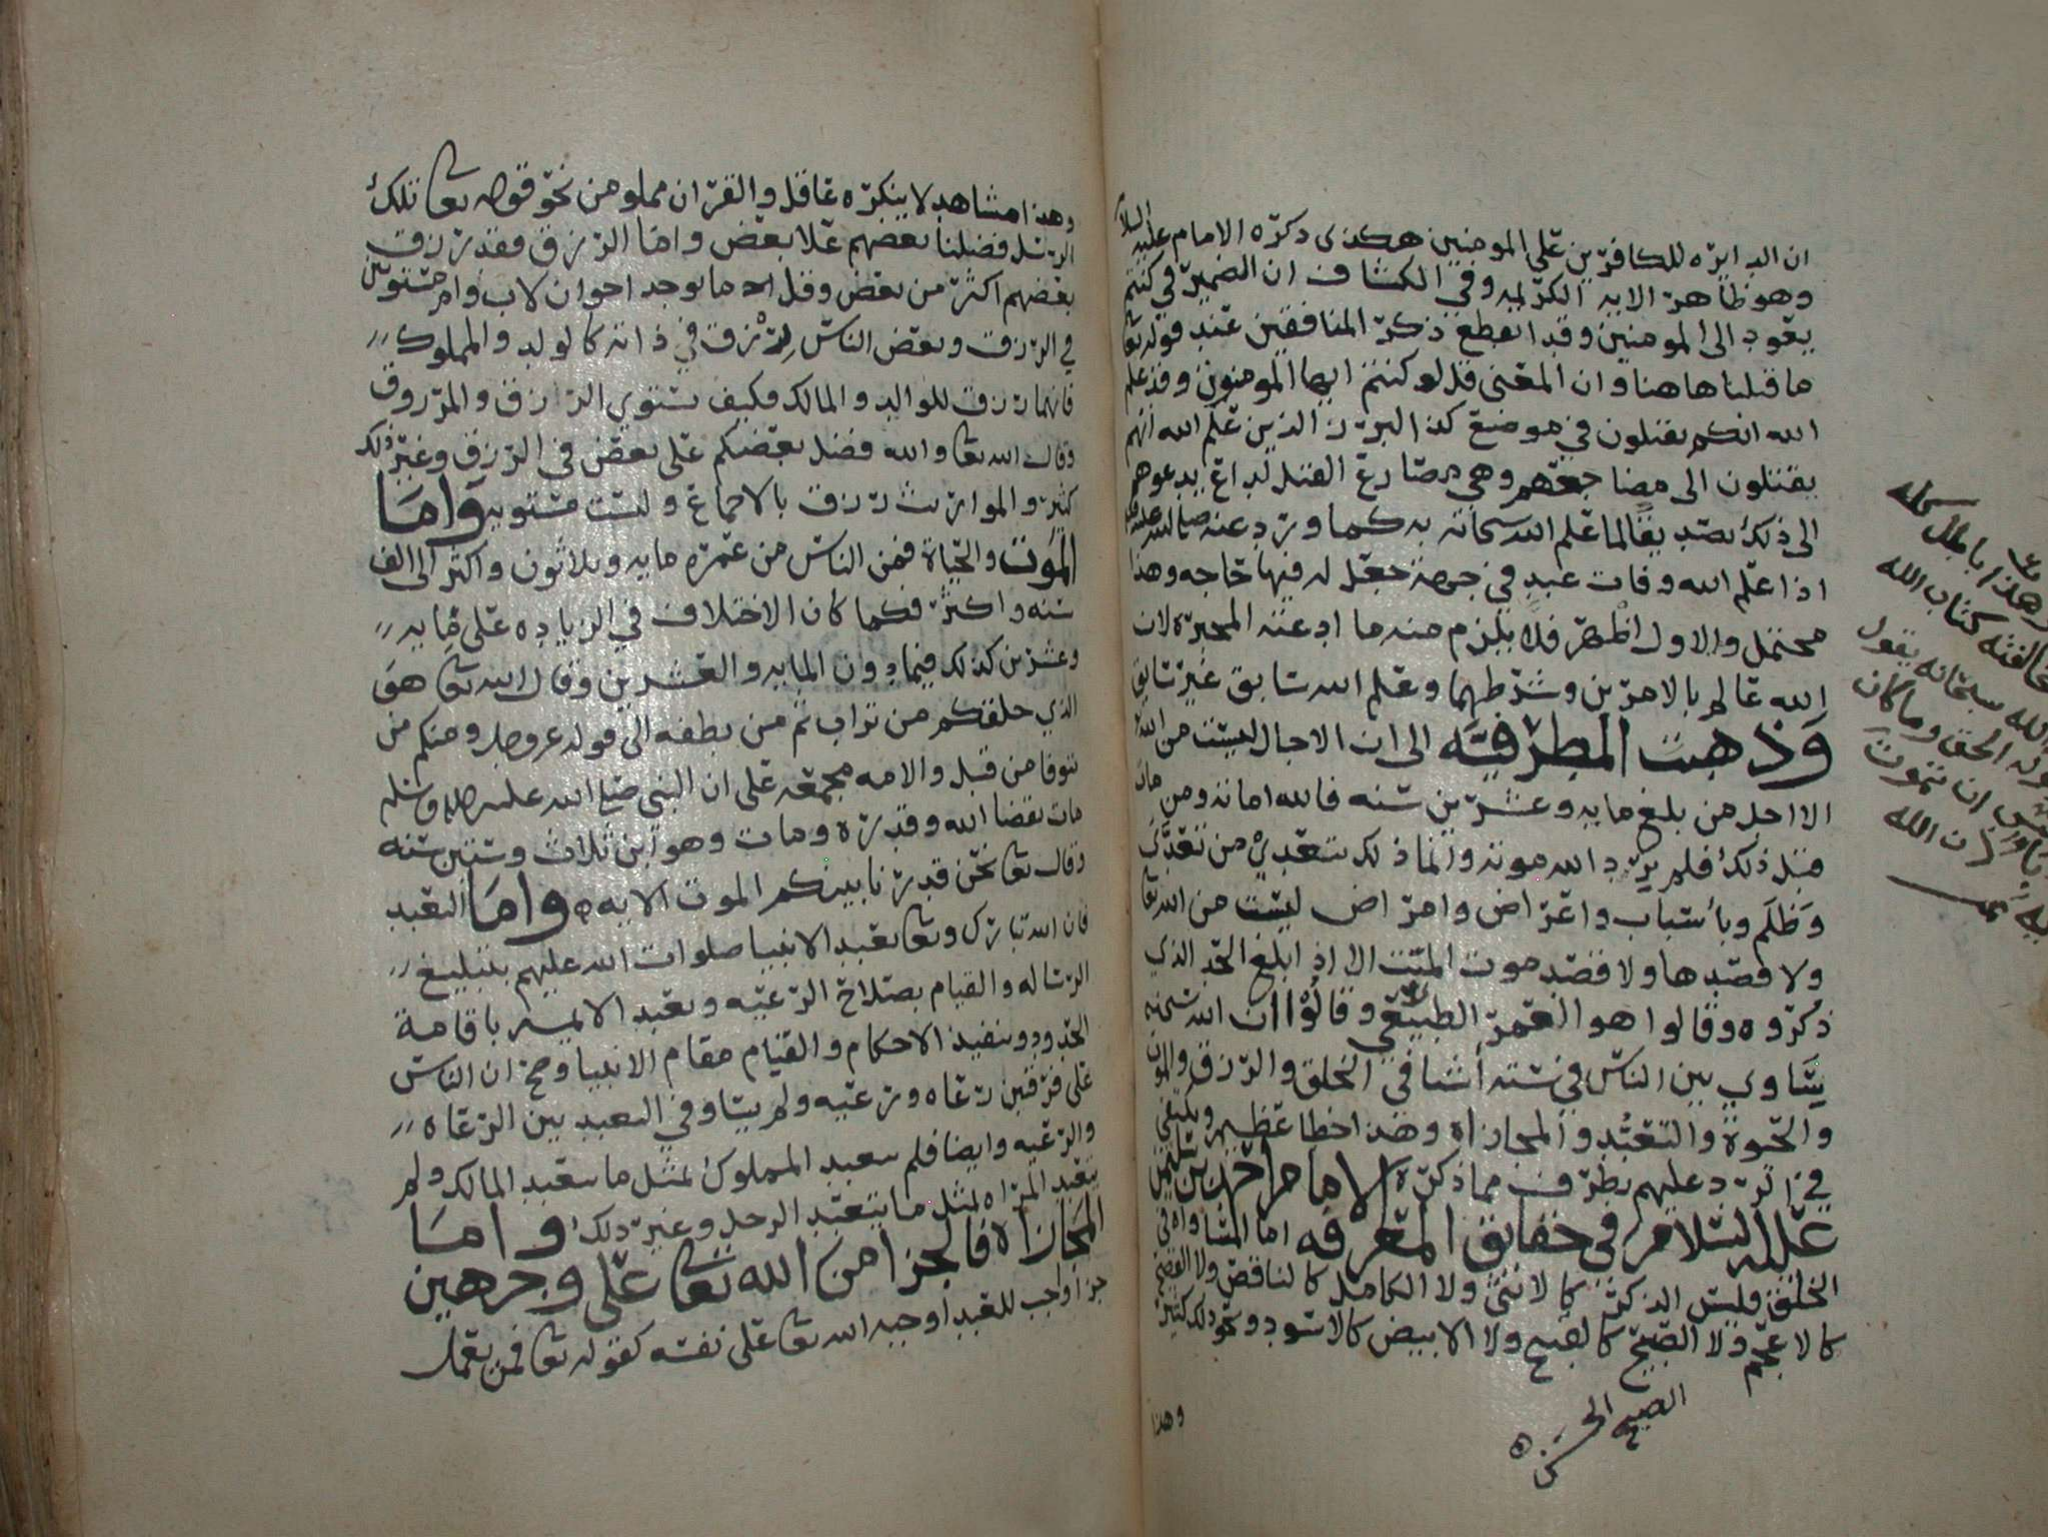 ان الدايره للكافرين على المومنين هكذى ذكره الامام عليه السلا
وهو ظاهر الايه الكريمه وفي الكشاف ان الضمير في كنتم
يعود الى المومنين وقد انقطع ذكر المنافقين عند قوله تعا
ما قتلنا هاهنا وان المعنى قل لو كنتم ايها المومنون وقد علم
الله انكم تقتلون في موضع كذا لبرز الذين علم الله انهم
يقتلون الى مضاجعهم وهي مصارع القتل لداع يدعوهم
الى ذلك تصديقا لما علم الله سبحانه به كما ورد عنه صلى الله عليه
اذا علم الله وفات عبد في جهة جعل له فيها حاجه وهذا
محتمل والاول اظهر فلا يلزم منه ما ادعته المجبرة لان
الله عالم بالامرين وشرطهما وعلم الله سابق غير سايق
وذهبت المطرفيه الى ان الاجال ليست من الله
الا اجل من بلغ مايه وعشرين سنه فالله اماته ومن مات
قبل ذلك فلم يرد الله موته وانما ذلك بتعدي من تعدى
وظلم وبأسباب واعراض وامراض ليست من الله تعا
ولا قصدها ولا قصد موت الميت الا اذا بلغ الحد الذي
ذكروه وقالوا هو العمر الطبيعي وقالوا ان الله سبحنه
يساوي بين الناس في ستة أشيا في الخلق والرزق والموت
والحيوة والتعبد والمجازاه وهذا خطا عظيم ويكفي
في الرد عليهم بطرف مما ذكره الامام احمد بن سليمن
عليه السلام في حقايق المعرفه اما المساواه في
الخلق فليس الذكر كالانثى ولا الكامل كالناقص ولا الفصيح
كالاعجم ولا الصبيح كالقبيح ولا الابيض كالاسود ونحو ذلك كثير
الصبيح الحسن
وهذا
وهذا باطل كله
مخالفته كتاب الله
الله سبحانه يقول
قوله الحق وما كان
لنفس ان تموت
الا باذن الله
وهذا مشاهد لا ينكره عاقل والقران مملو من نحو قوله تعا تلك
الرسل فضلنا بعضهم على بعض واما الرزق فقد رزق
بعضهم اكثر من بعض وقل ما يوجد اخوان لاب وام مستويين
في الرزق وبعض الناس رزق في ذاته كالولد والمملوك
فانهما رزق للوالد والمالك فكيف يستوي الرازق والمرزوق
وقال الله تعا والله فضل بعضكم على بعض في الرزق وغير ذلك
كثير والمواريث رزق بالاجماع وليست مستويه واما
الموت والحياة فمن الناس من عمره مايه وثلاثون واكثر الى الف
سنه واكثر فكما كان الاختلاف في الزياده على مايه
وعشرين كذلك فيما دون المايه والعشرين وقال الله تعا هو
الذي خلقكم من تراب ثم من نطفه الى قوله عز وجل ومنكم من
يتوفا من قبل والامه مجمعه على ان النبي صلى الله عليه واله وسلم
مات بقضا الله وقدره ومات وهو ابن ثلاث وستين سنه
وقال تعا نحن قدرنا بينكم الموت الايه واما التعبد
فان الله تبارك وتعا تعبد الانبيا صلوات الله عليهم بتبليغ
الرساله والقيام بصلاح الرعيه وتعبد الايمه باقامة
الحدود وتنفيذ الاحكام والقيام مقام الانبيا وصح ان الناس
على فرقتين رعاه ورعيه ولم يساو في التعبد بين الرعاه
والرعيه وايضا فلم يتعبد المملوك بمثل ما يتعبد المالك ولم
يتعبد المراه بمثل ما يتعبد الرجل وغير ذلك واما
المجازاه فالجزا من الله تعا على وجهين
جزا واجب للعبد اوجبه الله تعا على نفسه كقوله تعا فمن يعمل